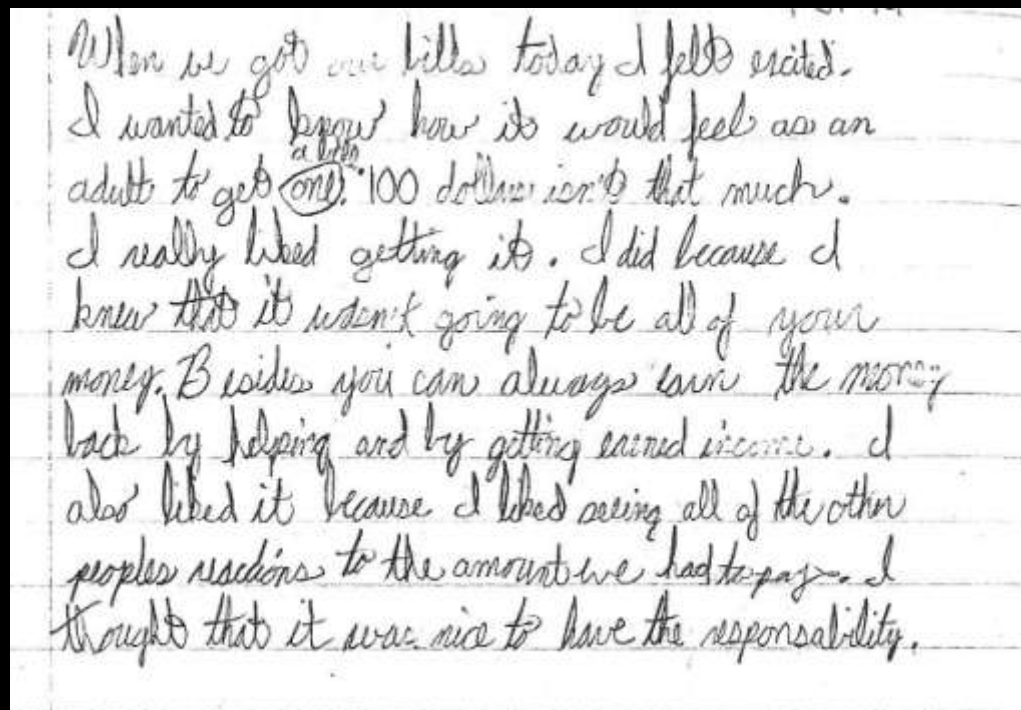 When we got our bills today I felt excited.
I wanted to know how it would feel as an
a bill
adult to get one. 100 dollars isn't that much.
I really liked getting it. I did because I
knew that it wasn't going to be all of your
money. Besides you can always earn the money
back by helping and by getting earned income. I
also liked it because I liked seeing all of the other
peoples reactions to the amount we had to pay. I
thought that it was nice to have the responsability.